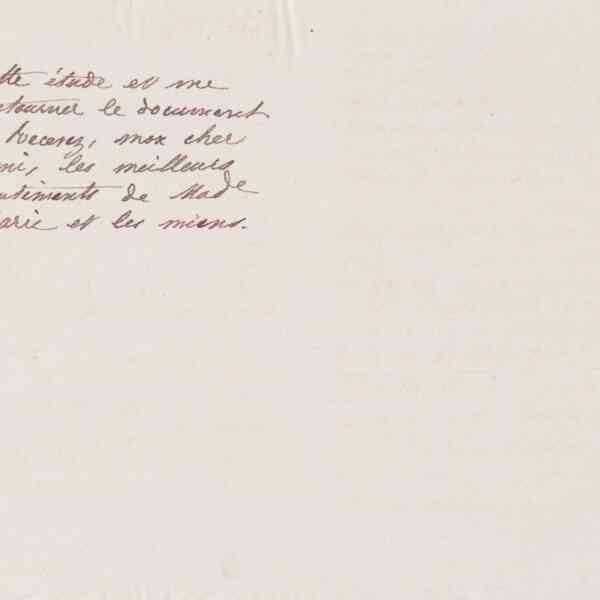 tte étude et me
etourner le document
Recevez, mon cher
mi, les meilleurs
ntiments de Made
arie et les miens.